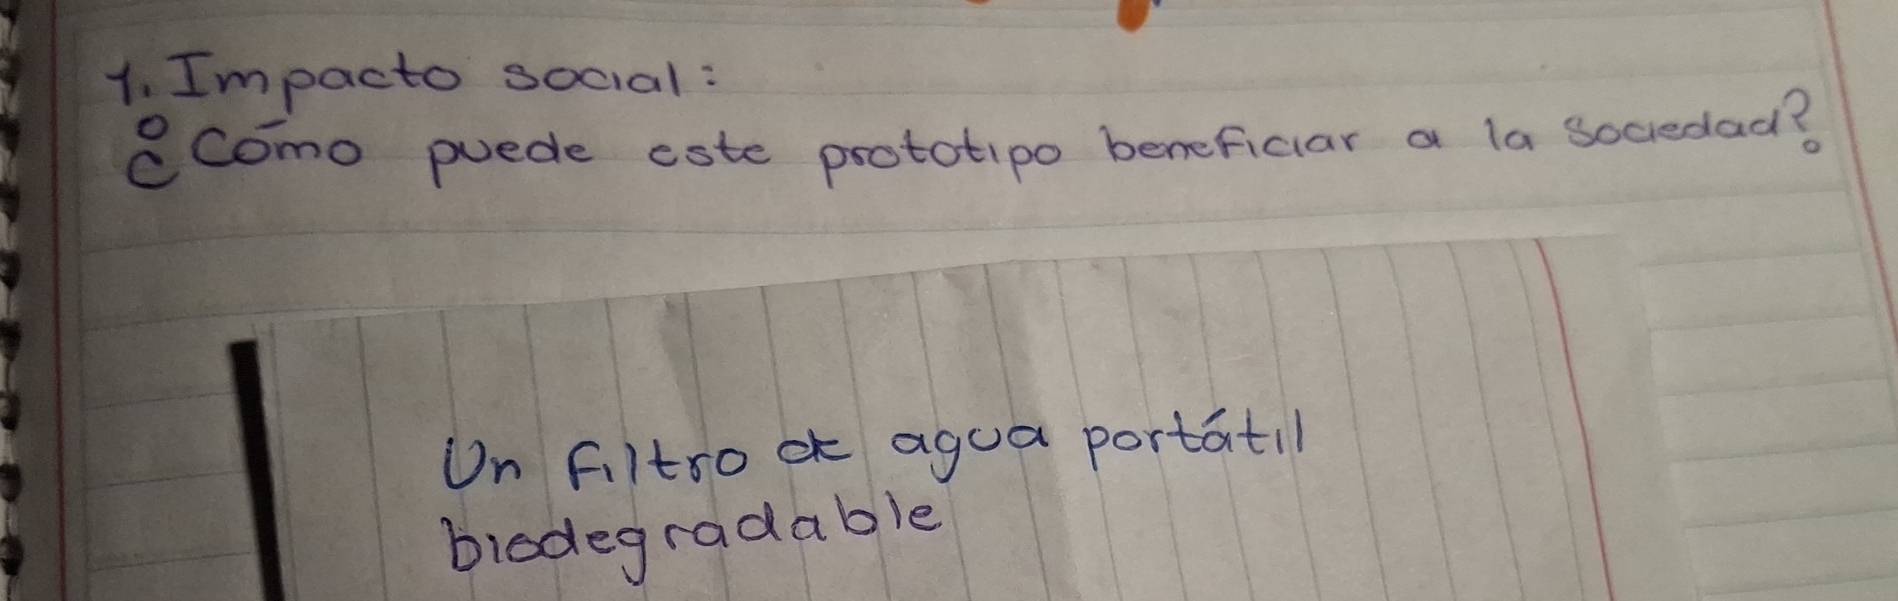 1. Impacto social:
¿Cómo puede este prototipo beneficiar a la sociedad?
Un filtro de agua portátil
biodegradable